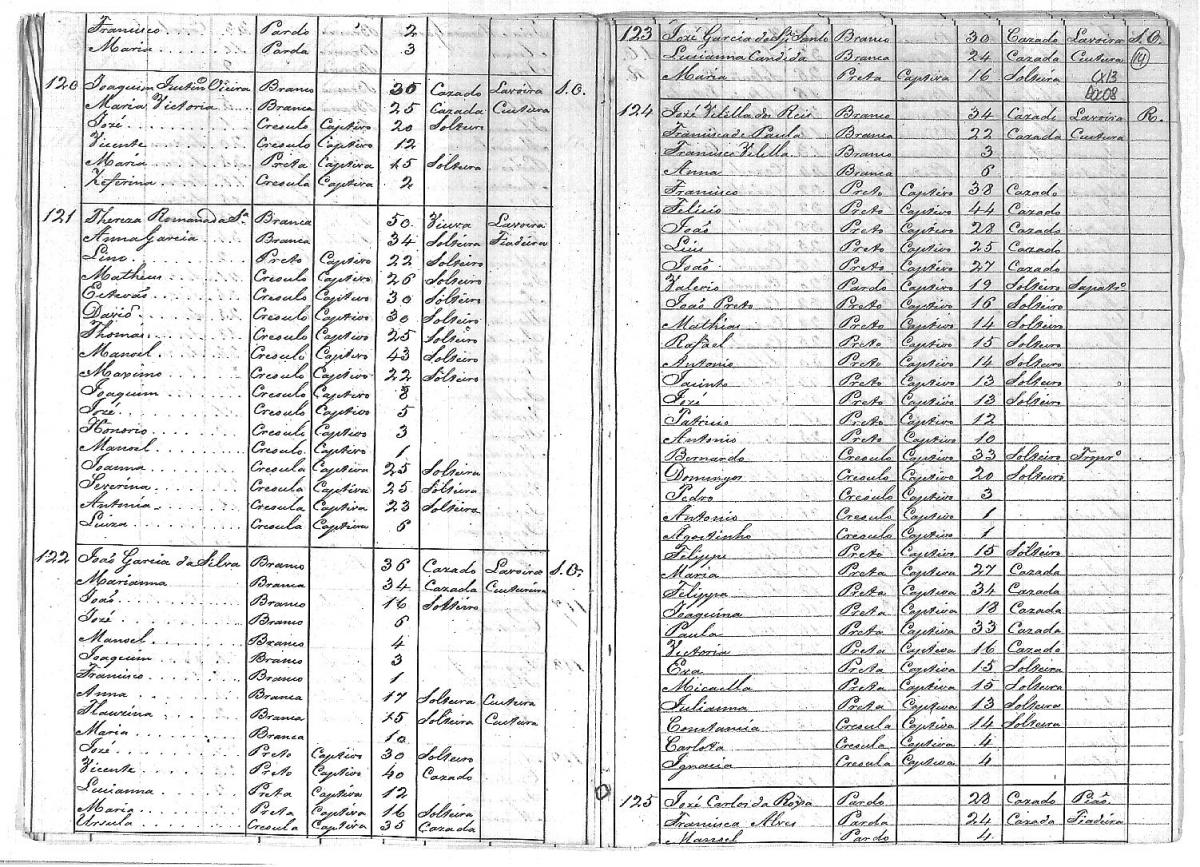 Francisco Pardo 2
Maria Parda 3
120 Joaquim Justino Vieira Branco 35 Cazado Lavoira S.O.
Maria Victoria Branca 25 Cazada Custura
Jozé Creoulo Captivo 20 Solteiro
Vicente Creoulo Captivo 12
Maria Preta Captiva 15 Solteira
Zeferina Creoula Captiva 2
121 Thereza Romana da Sa Branca 50 Viuva Lavoira
Anna Garcia Branca 34 Solteira Fiadeira
Lino Preto Captivo 22 Solteiro
Matheus Creoulo Captivo 26 Solteiro
Estevaõ Creoulo Captivo 30 Solteiro
David Creoulo Captivo 30 Solteiro
Thomás Creoulo Captivo 25 Solteiro
Manoel Creoulo Captivo 43 Solteiro
Maximo Creoulo Captivo 22 Solteiro
Joaquim Creoulo Captivo 8
Jozé Creoulo Captivo 5
Honorio Creoulo Captivo 3
Manoel Creoulo Captivo 1
Joanna Creoula Captiva 25 Solteira
Severina Creoula Captiva 25 Solteira
Antonia Creoula Captiva 23 Solteira
Luiza Creoula Captiva 6
122 Joaõ Garcia da Silva Branco 36 Cazado Lavoira S.O.
Marianna Branca 34 Cazada Custureira
Joaõ Branco 16 Solteiro
Jozé Branco 6
Manoel Branco 4
Joaquim Branco 3
Francisco Branco 1
Anna Branca 17 Solteira Custura
Flauzina Branca 15 Solteira Custura
Maria Branca 10
Jozé Preto Captivo 30 Solteiro
Vicente Preto Captivo 40 Cazado
Lucianna Preta Captiva 12
Maria Preta Captiva 16 Solteira
Ursula Creoula Captiva 35 Cazada
123 Jozé Garcia do Spto Santo Branco 30 Cazado Lavoira S.O.
Lucianna Candida Branca 24 Cazada Custura 14
Maria Preta Captiva 16 Solteira
124 Jozé Villella dos Reis Branco 34 Cazado Lavoira R.
Francisca de Paula Branca 22 Cazada Custura
Francisco Vilella Branco 3
Anna Branca 6
Francisco Preto Captivo 38 Cazado
Felicio Preto Captivo 44 Cazado
Joaõ Preto Captivo 28 Cazado
Luis Preto Captivo 25 Cazado
Joaõ Preto Captivo 27 Cazado
Valerio Pardo Captivo 19 Solteiro Sapato
Joaõ Preto Preto Captivo 16 Solteiro
Mathias Preto Captivo 14 Solteiro
Rafael Preto Captivo 15 Solteiro
Antonio Preto Captivo 14 Solteiro
Jacinto Preto Captivo 13 Solteiro
Jozé Preto Captivo 13 Solteiro
Patricio Preto Captivo 12
Antonio Preto Captivo 10
Bernardo Creoulo Captivo 33 Solteiro Tropro
Domingos Creoulo Captivo 20 Solteiro
Pedro Creoulo Captivo 3
Antonio Creoulo Captivo 1
Agostinho Creoulo Captivo 1
Felippe Preto Captivo 15 Solteiro
Maria Preta Captiva 27 Cazada
Felippa Preta Captiva 34 Cazada
Joaquina Preta Captiva 18 Cazada
Paula Preta Captiva 33 Cazada
Victoria Preta Captiva 16 Cazado
Eva Preta Captiva 15 Solteira
Micaella Preta Captiva 15 Solteira
Julianna Preta Captiva 13 Solteira
Constancia Creoula Captiva 14 Solteira
Carlota Creoula Captiva 4
Ignacia Creoula Captiva 4
125 Jozé Carlos da Roza Pardo 28 Cazado Piaõ
Francisca Alves Parda 24 Cazada Fiadeira
Manoel Pardo 4